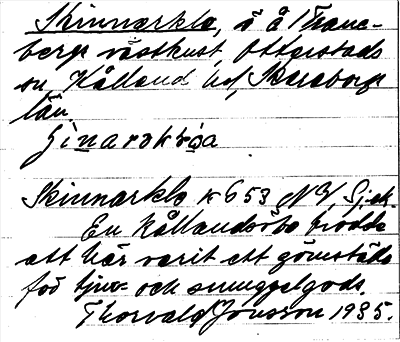 Skinnarkla, ö å Thane-
bergs västkust, Otterstads
sn, Kålland hd, Skaraborgs
län.
Skinnarkla K 653 NV, Sj.ek.
En Kållandsöbo trodde
att här varit ett gömställe
för tjuv- och smuggelgods.
Thorvald Jonsson 1935.